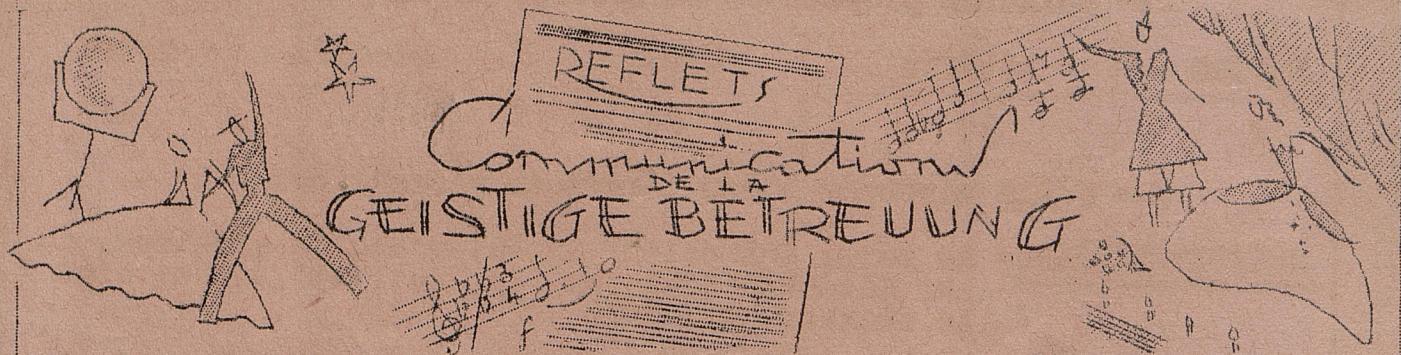 REFLETS
Communications
DE LA
GEISTIGE BETREUUNG
f